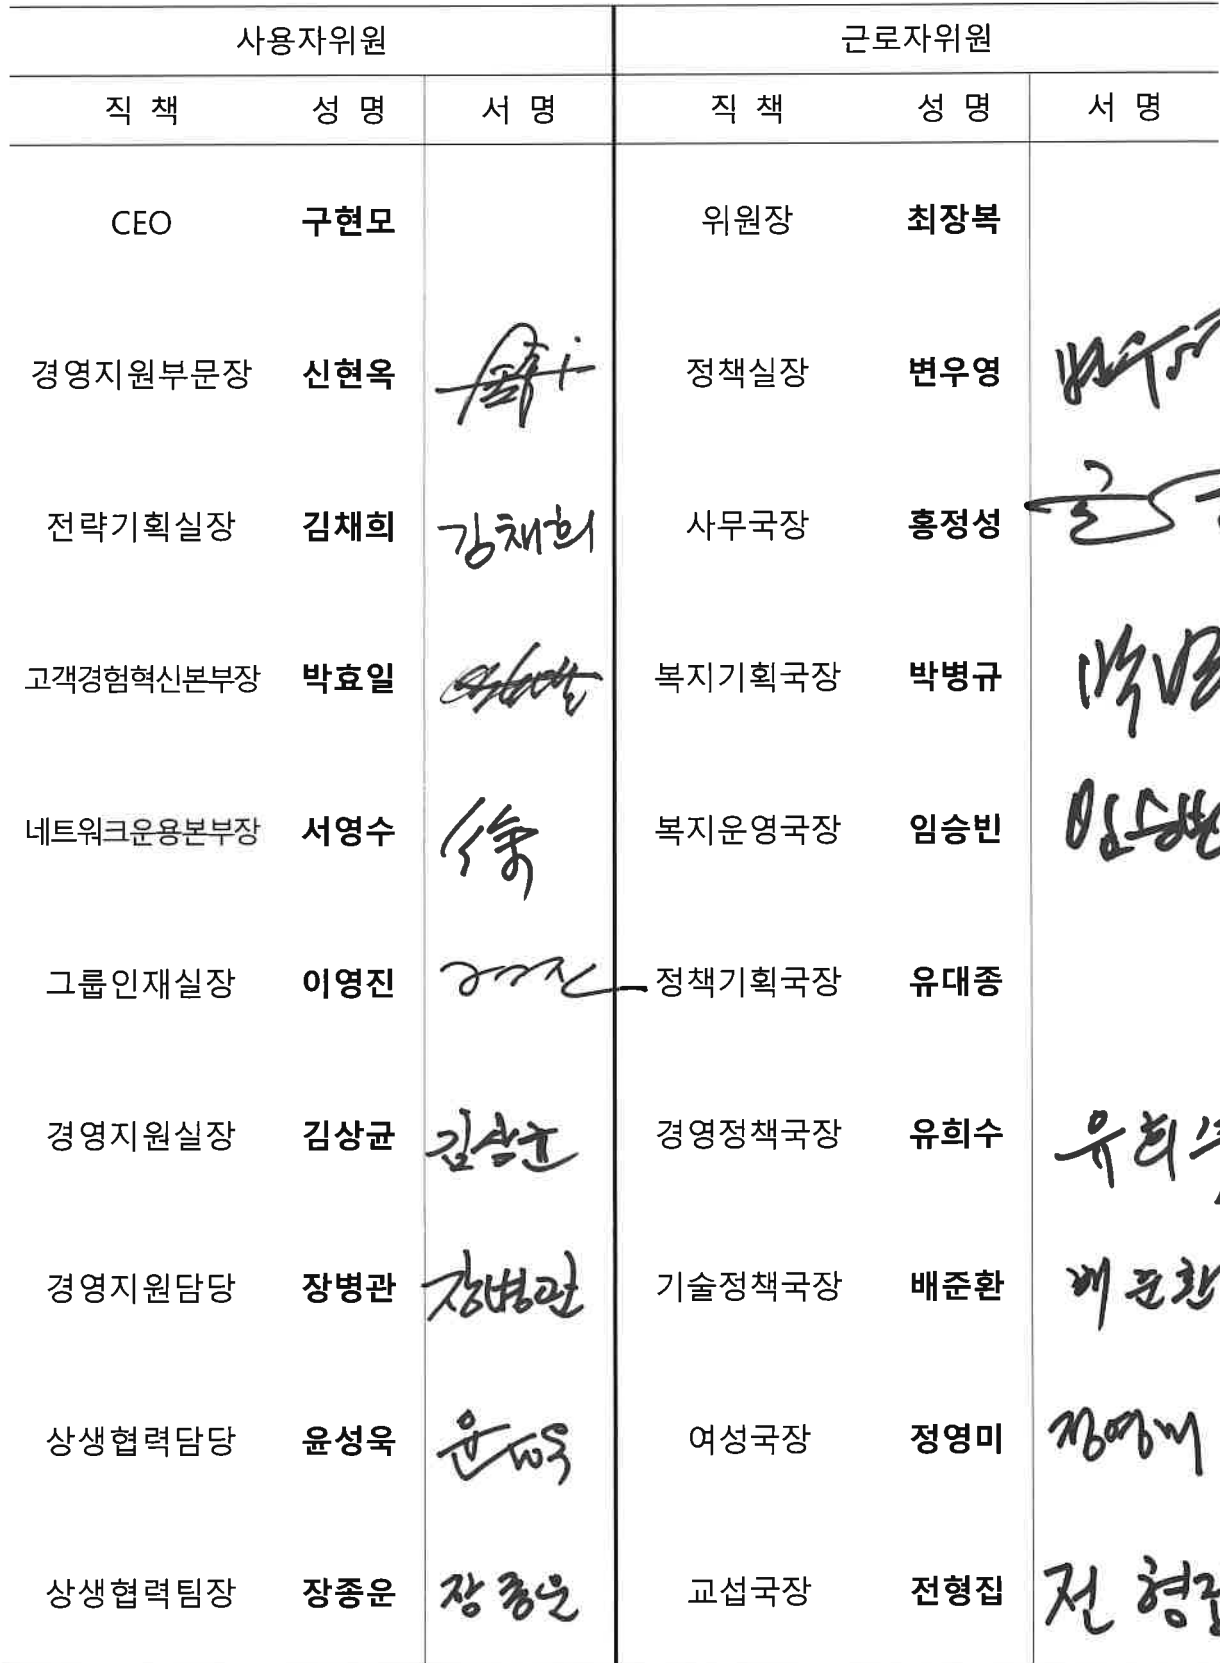 사용자위원 근로자위원
직 책 성 명 서 명 직 책 성 명 서 명
CEO 구현모 위원장 최장복
경영지원부문장 신현옥 정책실장 변우영
전략기획실장 김채희 김채희 사무국장 홍정성
고객경험혁신본부장 박효일 복지기획국장 박병규
네트워크운용본부장 서영수 복지운영국장 임승빈 임승빈
그룹인재실장 이영진 정책기획국장 유대종
경영지원실장 김상균 김상균 경영정책국장 유희수 유희수
경영지원담당 장병관 장병관 기술정책국장 배준환 배준환
상생협력담당 윤성욱 윤성욱 여성국장 정영미 정영미
상생협력팀장 장종운 장종운 교섭국장 전형집 전형집